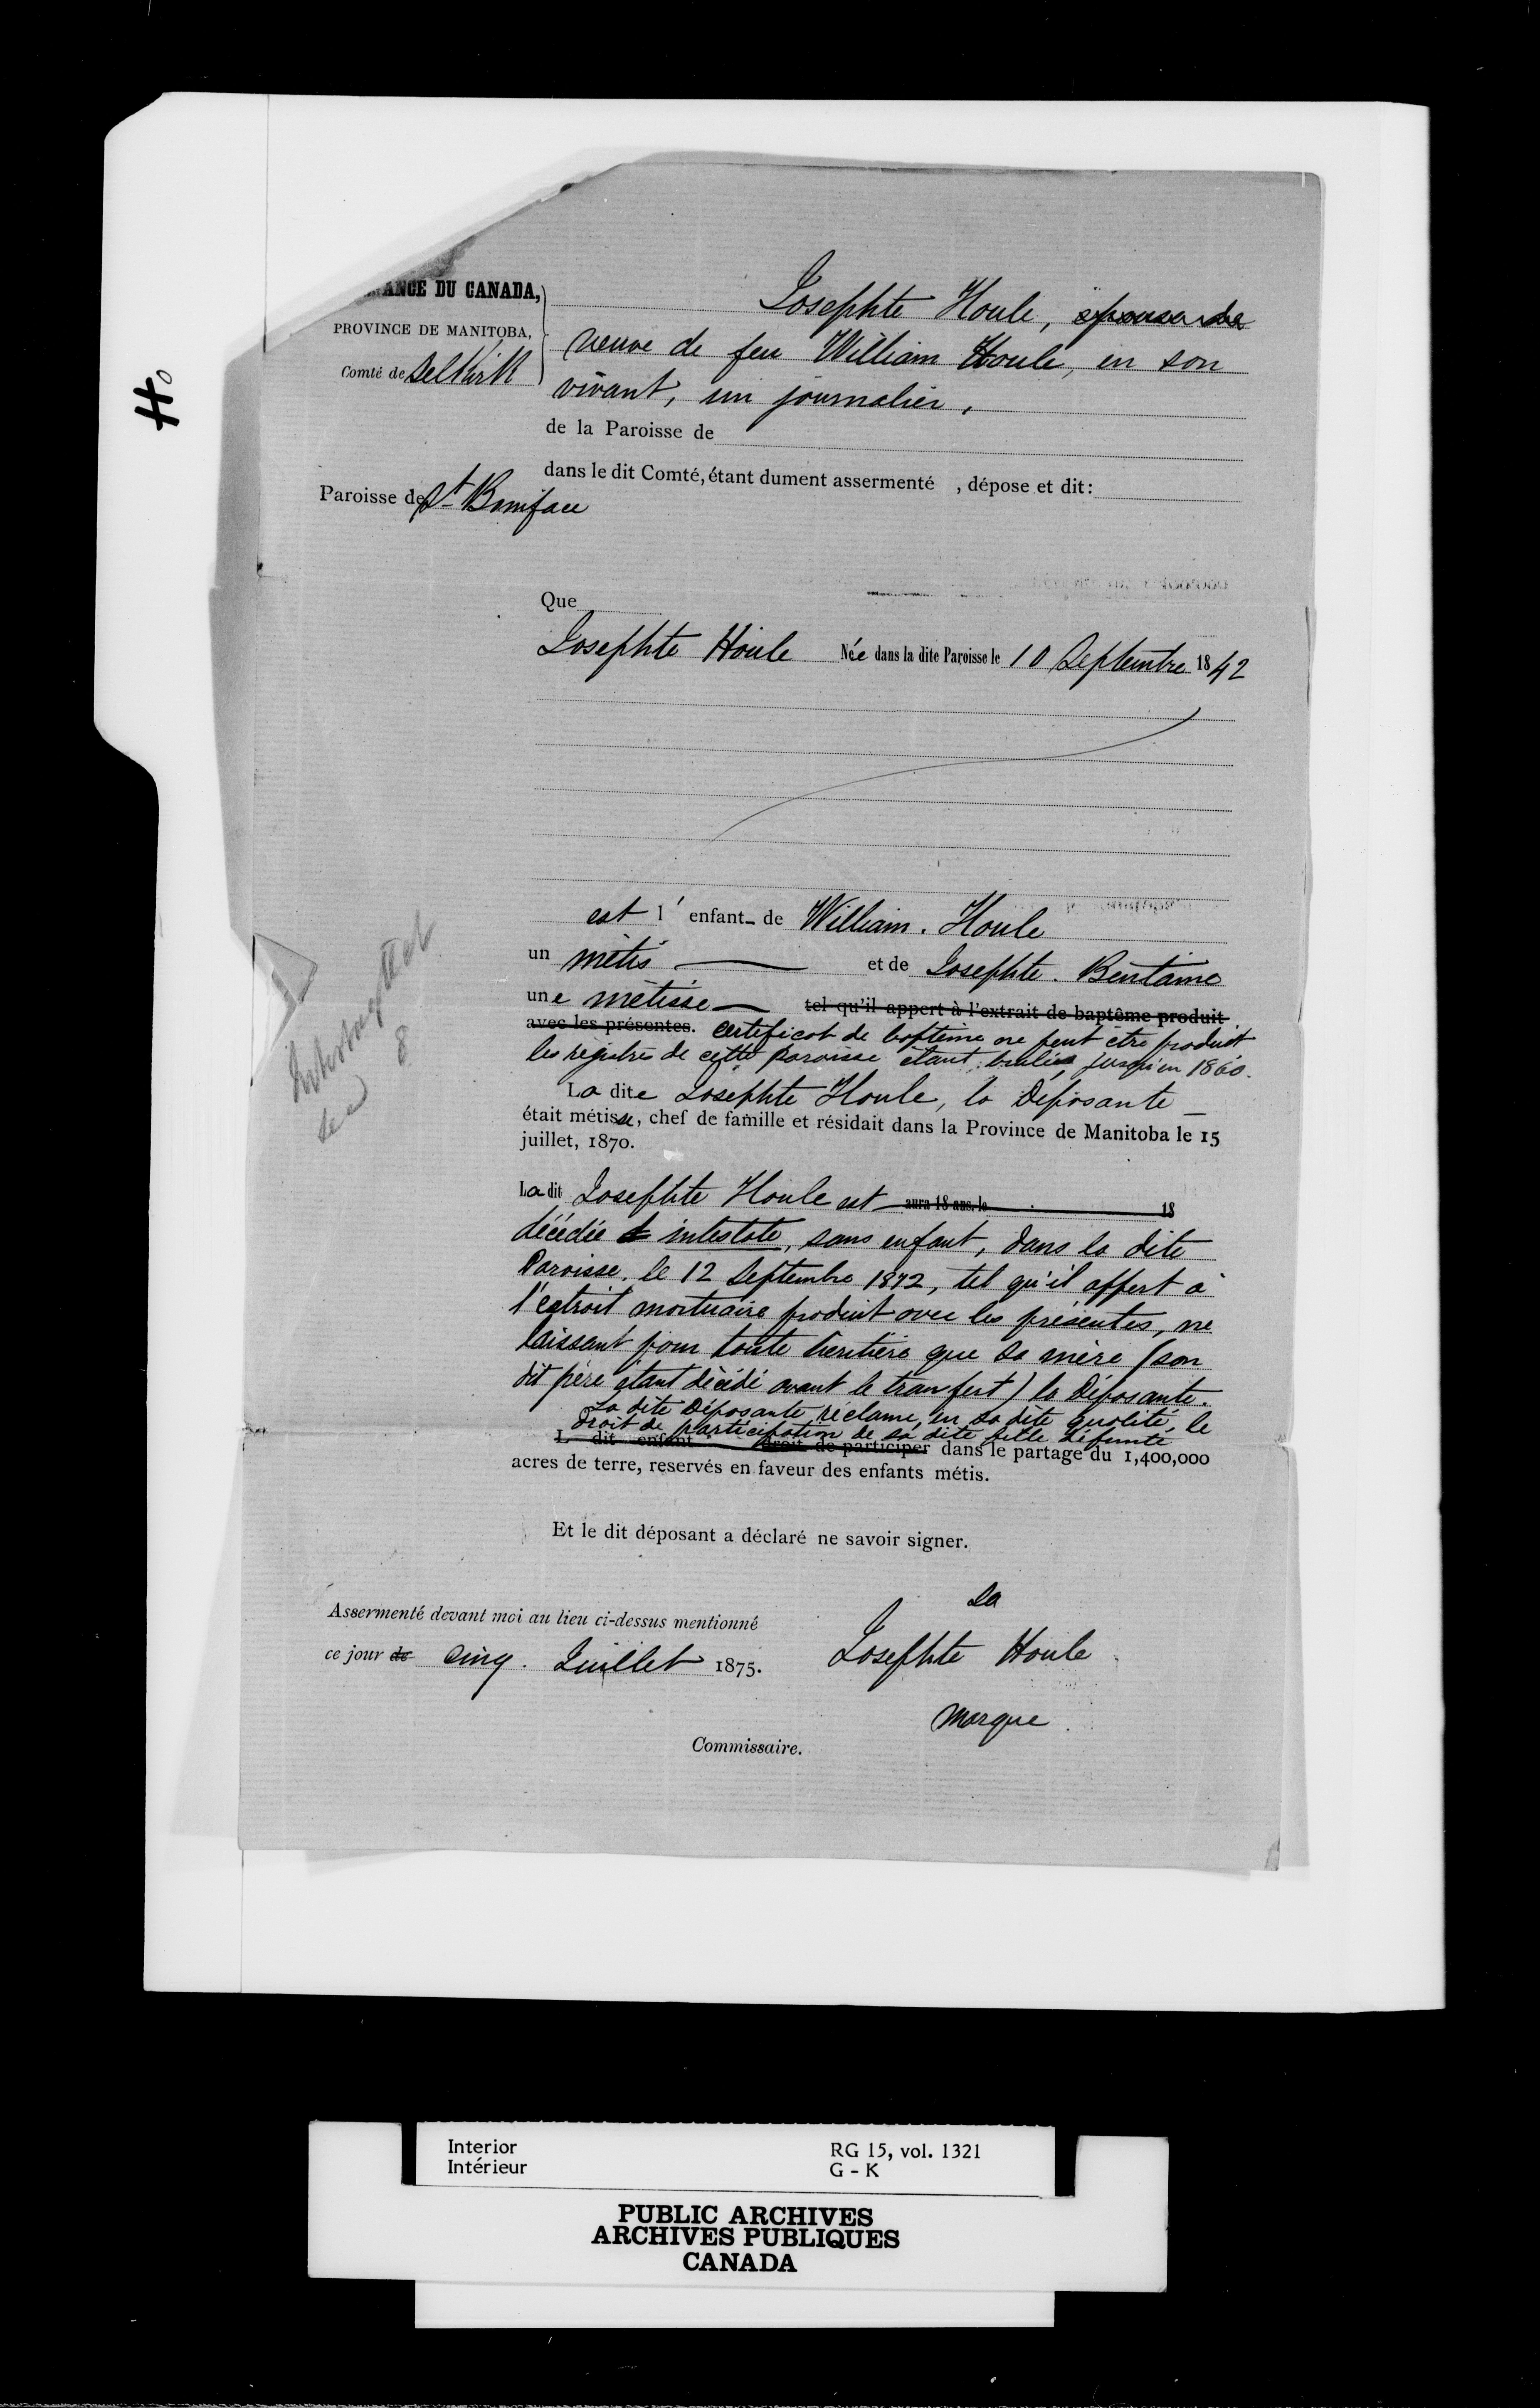 Ho
ANCE DU CANADA,
PROVINCE DE MANITOBA,
Comté de Selkirk
Paroisse de St Boniface
Josephte Houle, épouse de
veuve de feu William Houle, en son
vivant, un journalier,
de la Paroisse de
dans le dit Comté, étant dument assermenté , dépose et dit:
Que
Josephte Houle Née dans la dite Paroisse le 10 Septembre 1842
est l' enfant de William. Houle
un métis et de Josephte.
une métisse tel qu'il appert à l'extrait de baptême produit
avec les présentes. Certificat de baptême ne peut être produit
les régistres de cette paroisse étant brulés jusqu'en 1860.
La dite Josephte Houle, la Déposante
était métisse, chef de famille et résidait dans la Province de Manitoba le 15
juillet, 1870.
La dit Josephte Houle est aura 18 ans, le 18
décédée intestate, sans enfant, dans la dite
Paroisse, le 12 Septembre 1872, tel qu'il appert à
l'extrait mortuaire produit avec les présentes, ne
laissant pour toute héritière que sa mère (son
dit père étant décédé avant le transfert) la Déposante.
La dite Déposante réclame, en sa dite qualité, le
droit de participation de sa dite fille défunte
L dit enfant droit de participer dans le partage du 1,400,000
acres de terre, reservés en faveur des enfants métis.
Et le dit déposant a déclaré ne savoir signer.
Assermenté devant moi au lieu ci-dessus mentionné
ce jour de cinq. Juillet 1875.
Commissaire.
sa
Josephte Houle
marque
Interior
Intérieur
RG 15, vol. 1321
G - K
PUBLIC ARCHIVES
ARCHIVES PUBLIQUES
CANADA